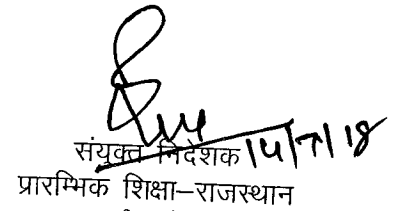 संयुक्त निदेशक 14/7/18
प्रारम्भिक शिक्षा–राजस्थान